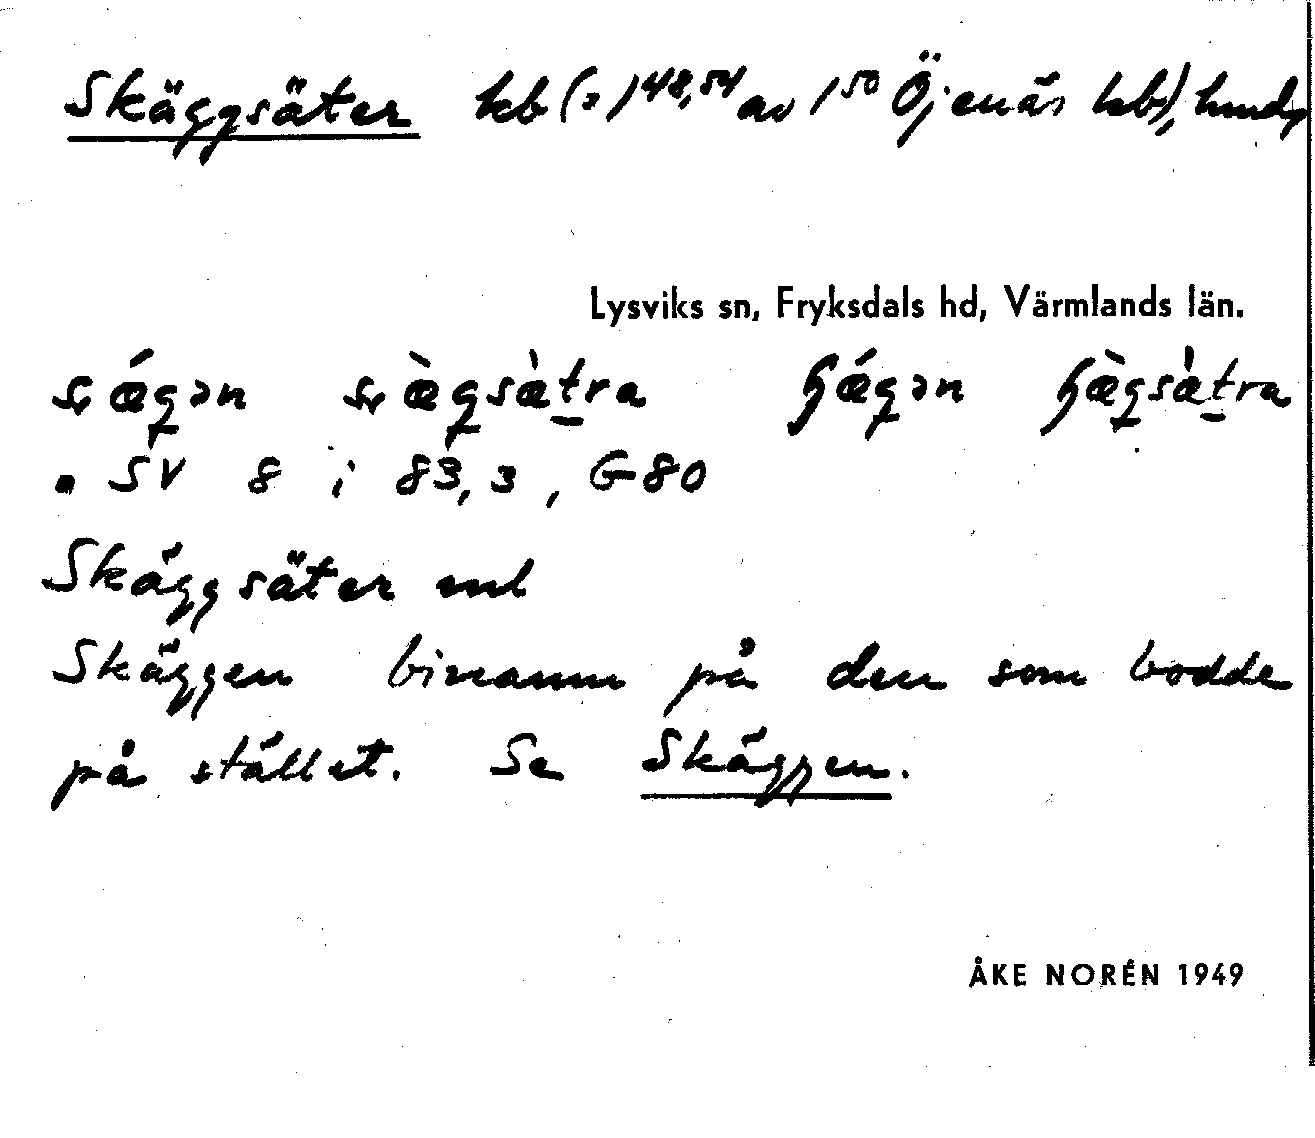 Skäggsäter hb (= 1⁴⁸,⁵⁴ av 1⁵⁰ Öjenäs hb),
Lysviks sn, Fryksdals hd, Värmlands län.
• SV 8 i 83,3, G80
Skäggsäter uul
Skäggen binamn på den som bodde
på stället. Se Skäggen.
ÅKE NORÉN 1949